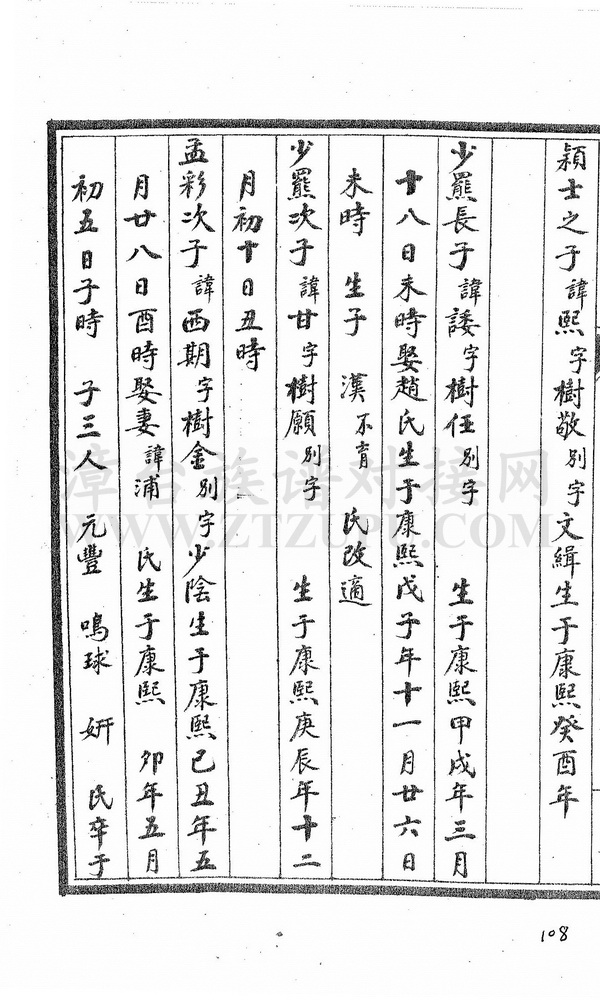 穎士之子諱熙字樹敬別字文緝生于康熙癸酉年
少羆長子諱諉字樹任別字 生于康熙甲戌年三月
十八日未時娶趙氏生于康熙戊子年十一月廿六日
未時 生子 漢不育 氏改適
少羆次子諱甘字樹願別字 生于康熙庚辰年十二
月初十日丑時
孟彩次子諱西期字樹金別字少陰生于康熙己丑年五
月廿八日酉時娶妻諱浦 氏生于康熙 卯年五月
初五日子時 子三人 元豐 鳴球 妍 氏卒于
漳台族谱对接网
WWW.ZTZUPU.COM
108